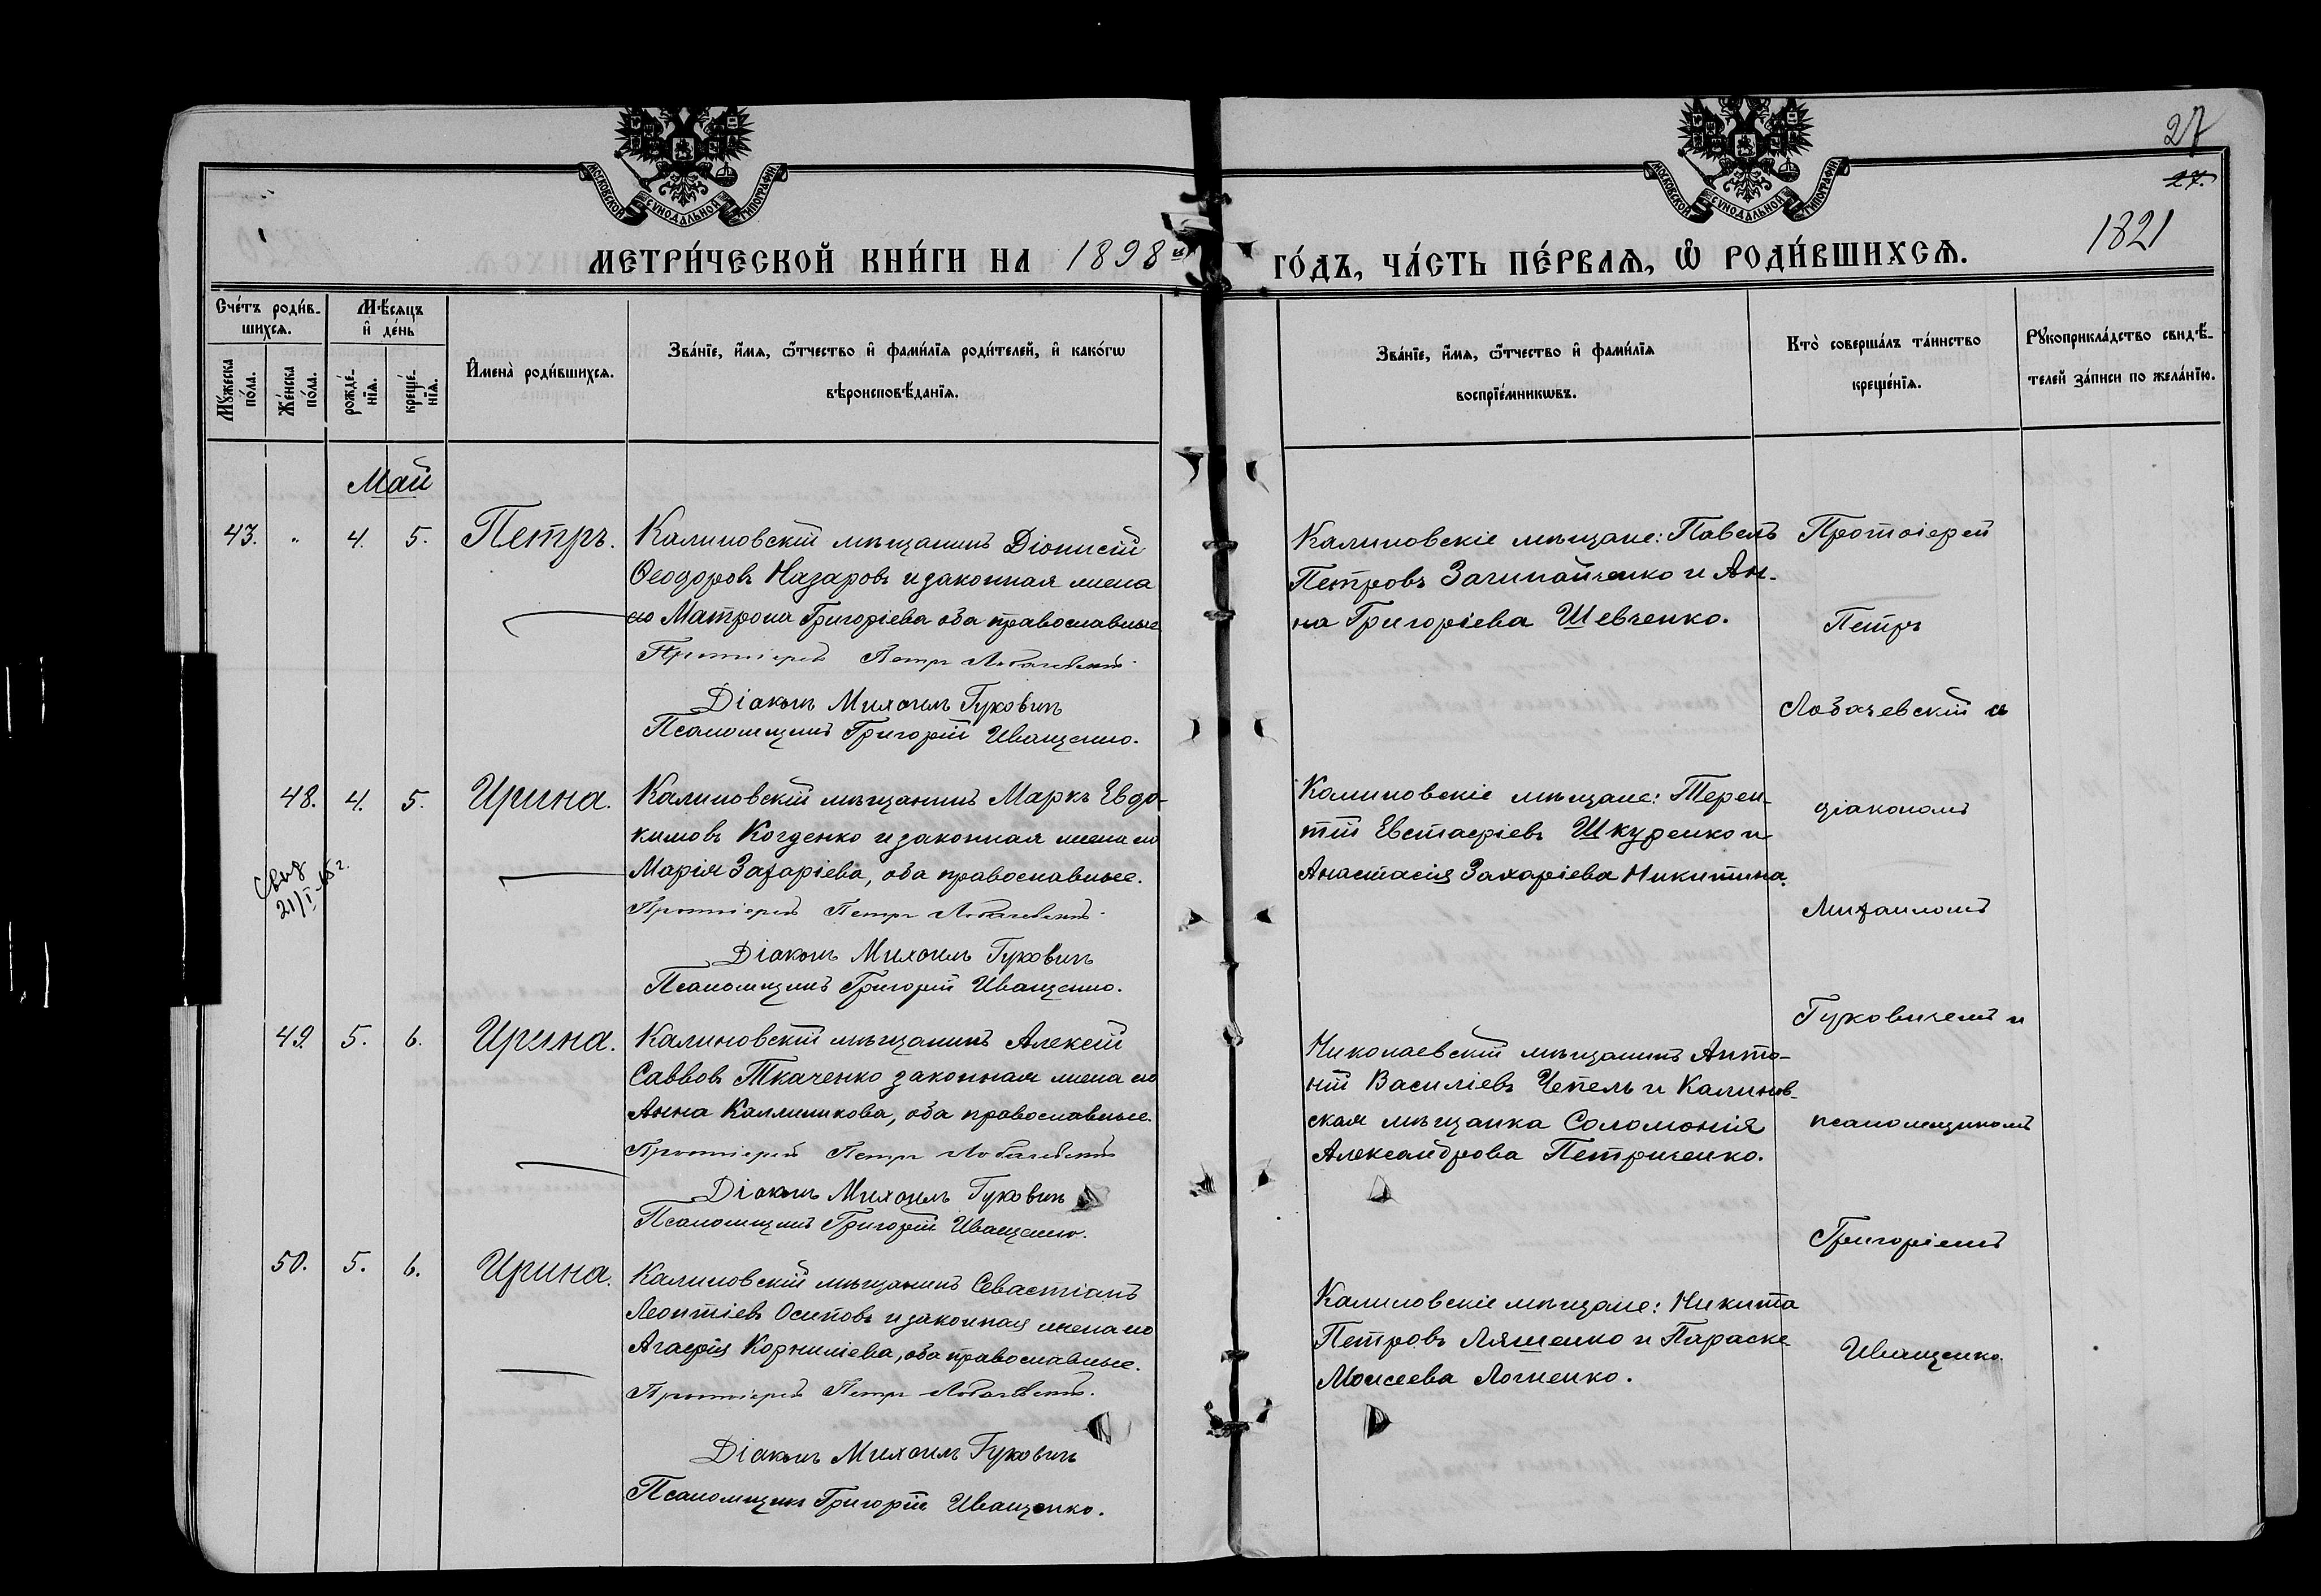 27
27.
1821
МОСКОВСКОЙ СѴНОДАЛЬНОЙ ТИПОГРАФІИ
МОСКОВСКОЙ СѴНОДАЛЬНОЙ ТИПОГРАФІИ
МЕТРИ́ЧЕСКОЙ КНИ́ГИ НА 1898й ГО́ДЪ, ЧА́СТЬ ПЕ́РВАѦ, Ѽ РОДИ́ВШИХСѦ.
Сче́тъ роди́в-
шихсѧ.
Мꙋ́жеска по́ла.
Же́нска по́ла.
Мѣ́сѧцъ
и҆ де́нь
рожде́-
нїѧ.
креще́-
нїѧ.
И҆мена̀ роди́вшихсѧ.
Зва́нїе, и҆́мѧ, ѻ҆́тчество и҆ фами́лїѧ роди́телей, и҆ како́гѡ
вѣроисповѣ́данїѧ.
Зва́нїе, и҆́мѧ, ѻ҆́тчество и҆ фами́лїѧ
воспрїе́мникѡвъ.
Кто̀ соверша́лъ та́инство
креще́нїѧ.
Рꙋкоприкла́дство свидѣ́-
телей за́писи по жела́нїю.
Май
43. " 4. 5. Петръ.
Калиновскій мѣщанинъ Діонисій
Ѳеодоровъ Назаровъ и законная жена
его Матрона Григоріева оба православные
Протоіерей Петръ Лобачевскій.
Діаконъ Михаилъ Гуковичъ
Псаломщикъ Григорій Иващенко.
Калиновскіе мѣщане: Павелъ
Петровъ Зачипайченко и Ан-
на Григоріева Шевченко.
48. 4. 5. Ирина.
Свид
21/I-65 г.
Калиновскій мѣщанинъ Маркъ Евдо-
кимовъ Когденко и законная жена его
Марія Захаріева, оба православные.
Протоіерей Петръ Лобачевскій.
Діаконъ Михаилъ Гуковичъ
Псаломщикъ Григорій Иващенко.
Калиновскіе мѣщане: Терен-
тій Евстафіевъ Шкуренко и
Анастасія Захаріева Никитина.
49. 5. 6. Ирина.
Калиновскій мѣщанинъ Алексій
Саввовъ Ткаченко законная жена его
Анна Каллиникова, оба православные.
Протоіерей Петръ Лобачевскій
Діаконъ Михаилъ Гуковичъ
Псаломщикъ Григорій Иващенко.
Николаевскій мѣщанинъ Анто-
ній Василіевъ Чепель и Калинов-
ская мѣщанка Соломонія
Александрова Петриченко.
50. 5. 6. Ирина.
Калиновскій мѣщанинъ Севастіанъ
Леонтіевъ Осиповъ и законная жена его
Агафія Корниліева, оба православные.
Протоіерей Петръ Лобачевскій.
Діаконъ Михаилъ Гуковичъ
Псаломщикъ Григорій Иващенко.
Калиновскіе мѣщане: Никита
Петровъ Ляшенко и Параске
Моисеева Логненко.
Протоіерей
Петръ
Лобачевскій и
діакономъ
Михаиломъ
Гуковичемъ и
псаломщикомъ
Григоріемъ
Иващенко.